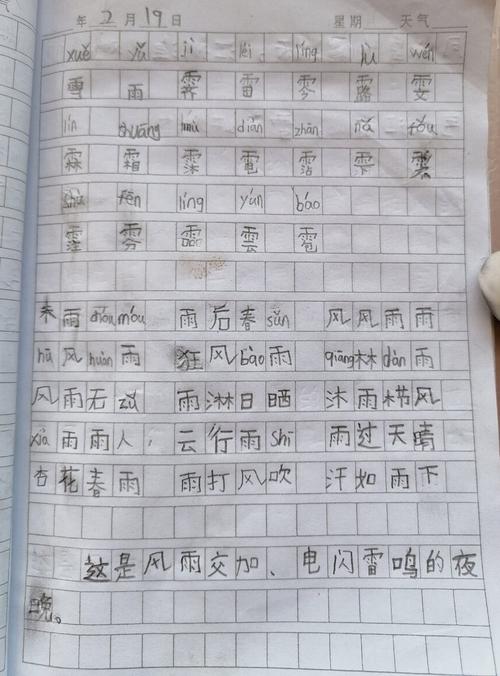 年 2 月 19 日 星期 天气
xuě yǔ jì léi líng lù wén
雪 雨 霁 雷 零 露 雯
lín shuāng mù diàn zhān
霖 霜 霂 電 霑
fēn líng yún báo
雰 雲 雹
春雨 雨后春sǔn 风风雨雨
hū风huàn雨 狂风bào雨 qiāng林dàn雨
风雨无zǔ 雨淋日晒 沐雨栉风
xià雨雨人, 云行雨shī 雨过天晴
杏花春雨 雨打风吹 汗如雨下
这是风雨交加、电闪雷鸣的夜
晚。